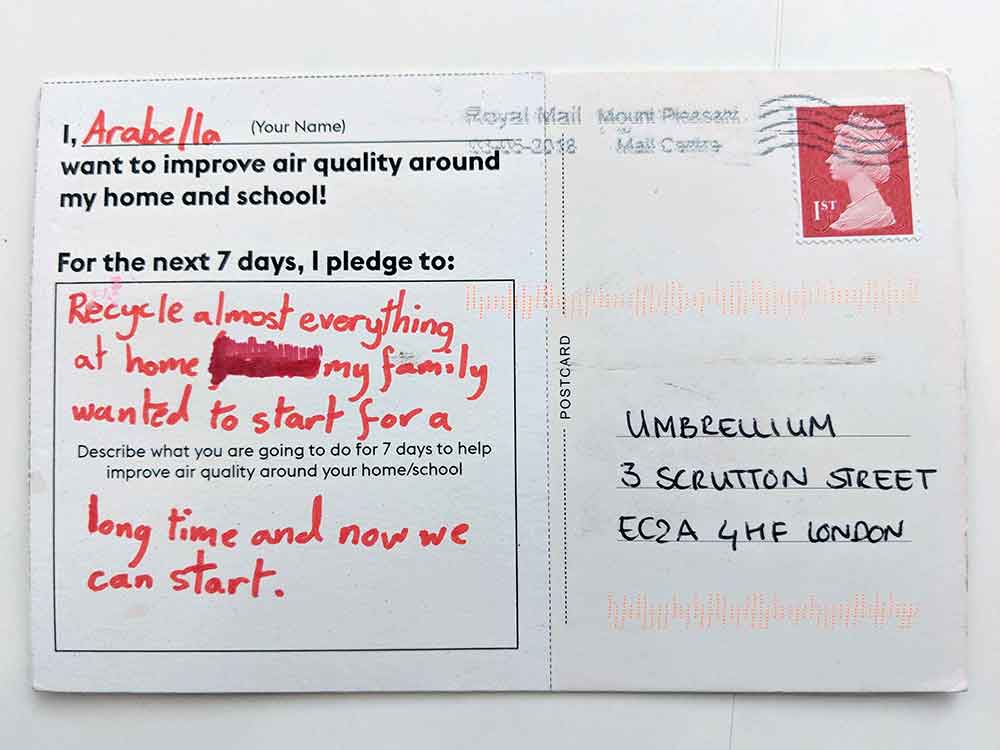 I, Arabella (Your Name)
want to improve air quality around
my home and school!
For the next 7 days, I pledge to:
Recycle almost everything
at home my family
wanted to start for a
Describe what you are going to do for 7 days to help
improve air quality around your home/school
long time and now we
can start.
Royal Mail Mount Pleasant
-2018 Mail Centre
1ST
POSTCARD
UMBRELLIUM
3 SCRUTTON STREET
EC2A 4HF LONDON